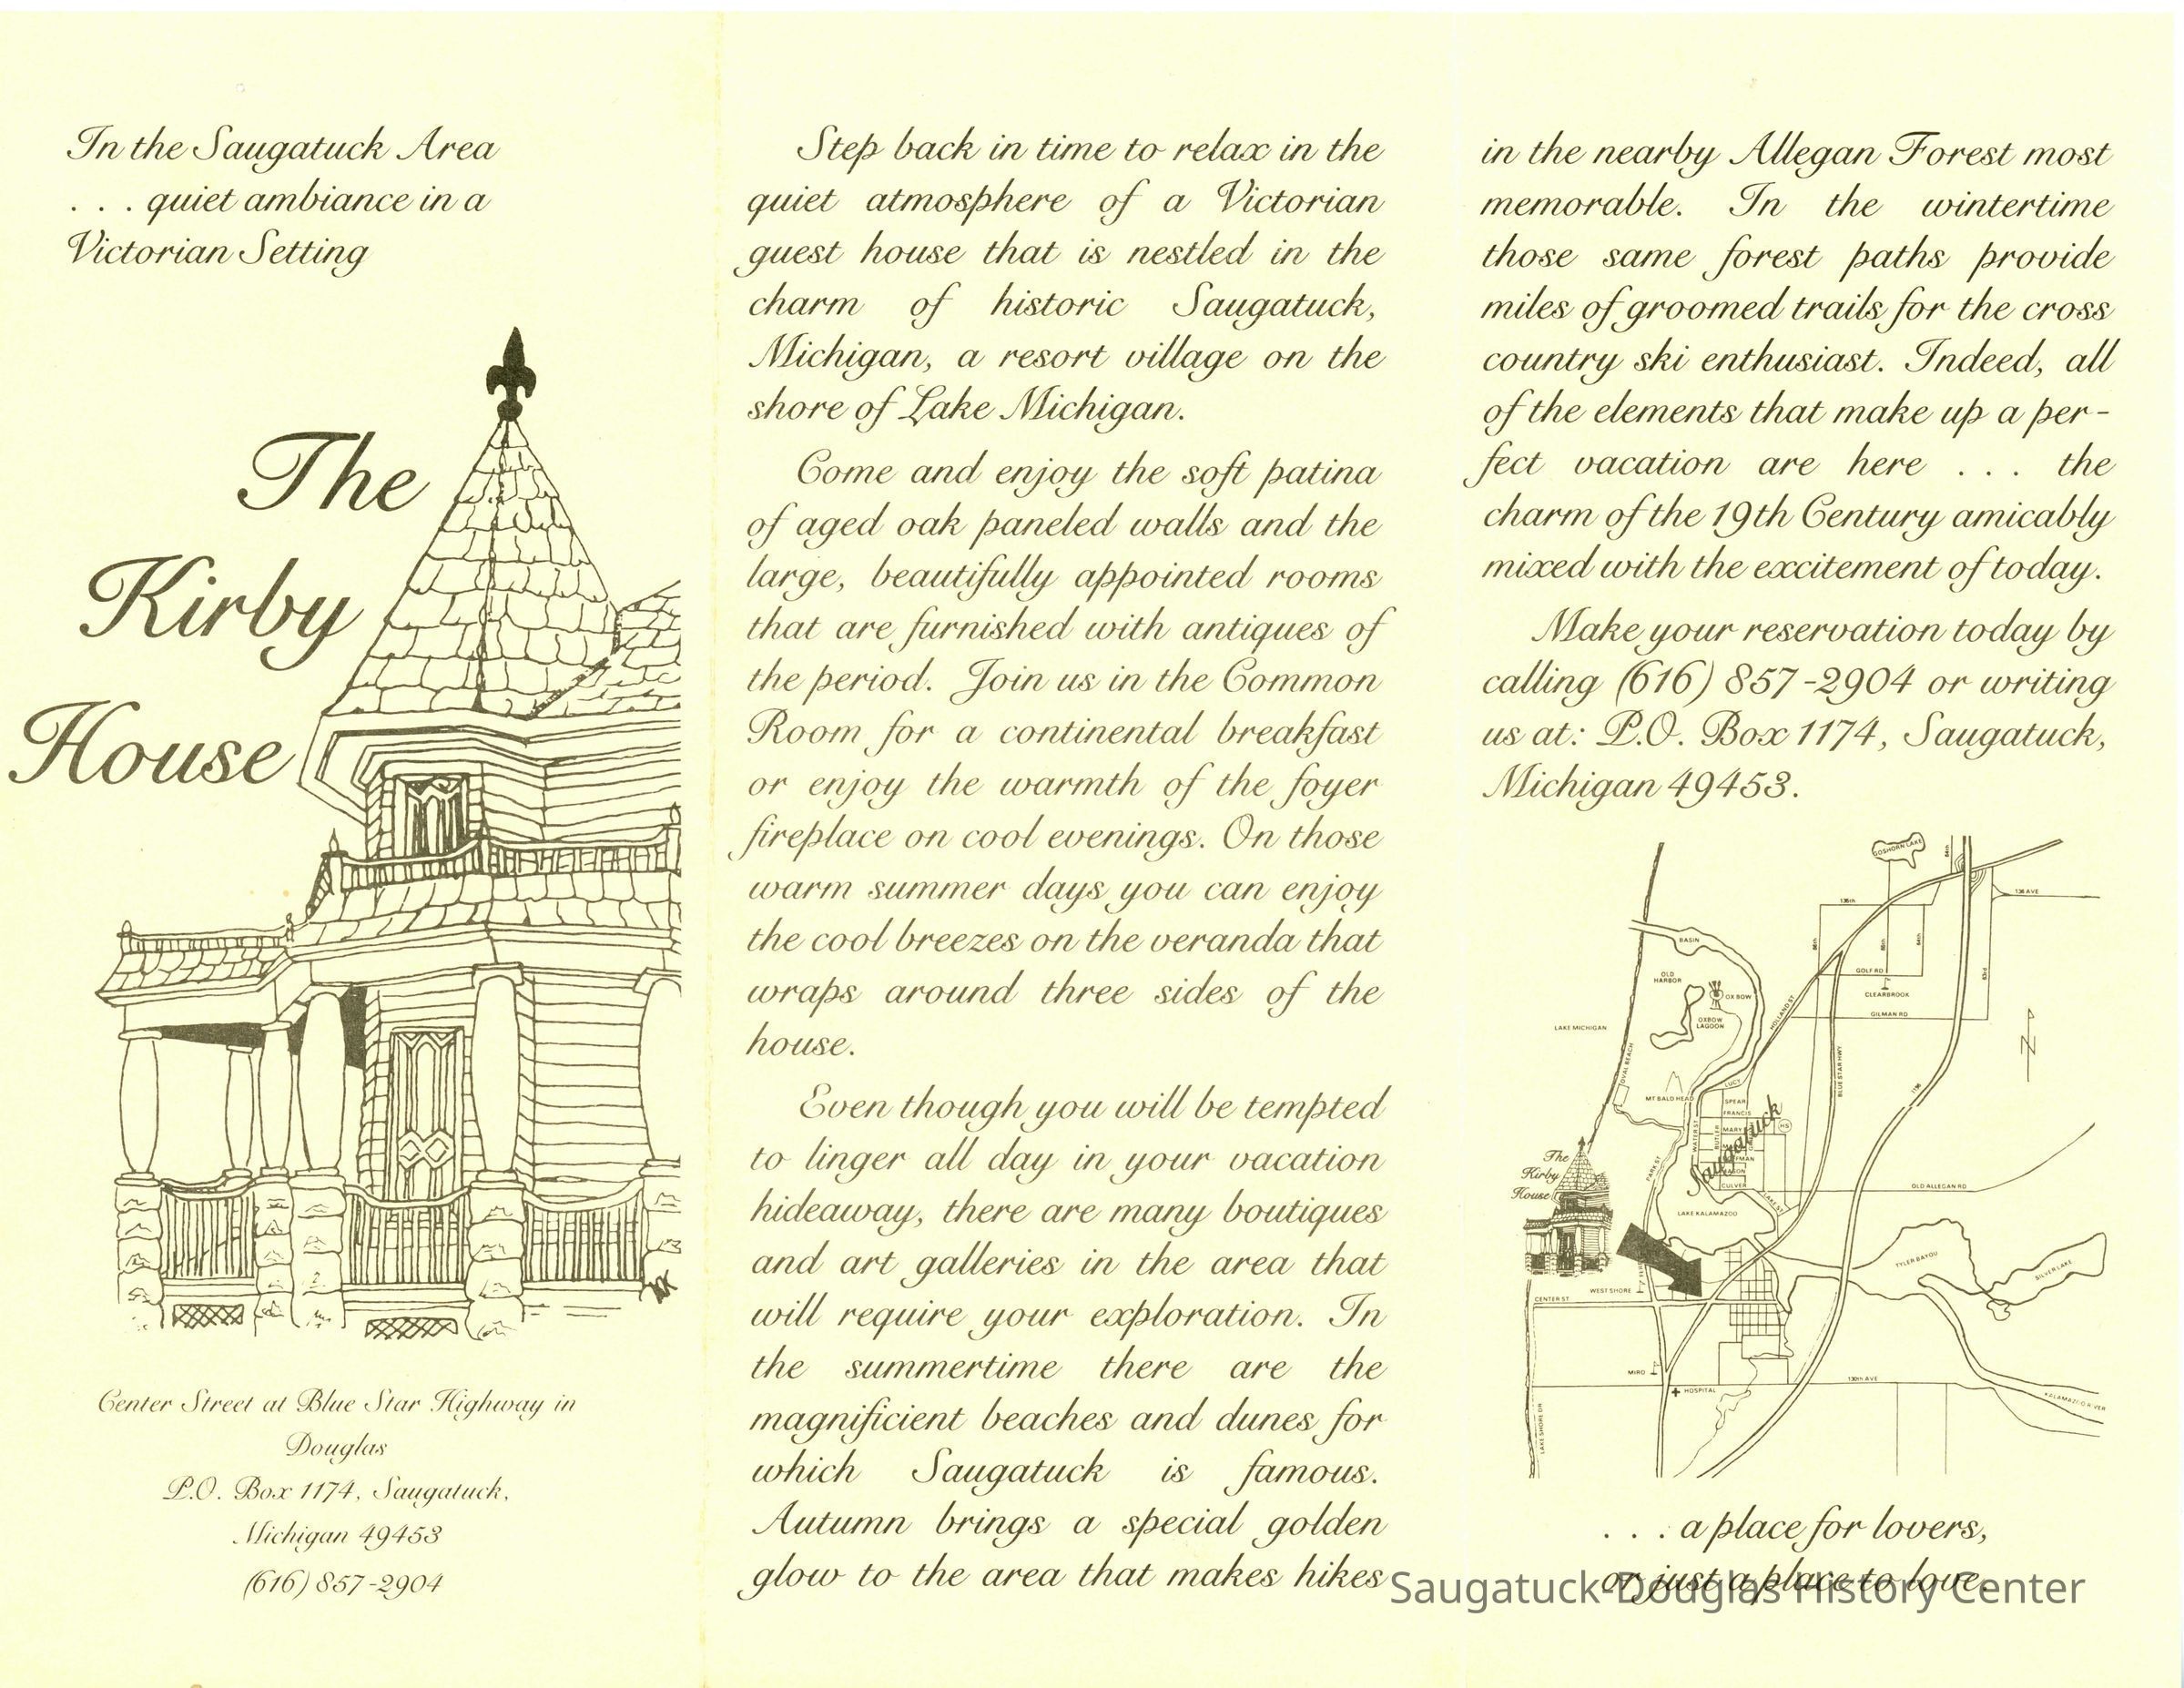 In the Saugatuck Area
. . . quiet ambiance in a
Victorian Setting
The
Kirby
House
Center Street at Blue Star Highway in
Douglas
P.O. Box 1174, Saugatuck,
Michigan 49453
(616) 857-2904
Step back in time to relax in the
quiet atmosphere of a Victorian
guest house that is nestled in the
charm of historic Saugatuck,
Michigan, a resort village on the
shore of Lake Michigan.
Come and enjoy the soft patina
of aged oak paneled walls and the
large, beautifully appointed rooms
that are furnished with antiques of
the period. Join us in the Common
Room for a continental breakfast
or enjoy the warmth of the foyer
fireplace on cool evenings. On those
warm summer days you can enjoy
the cool breezes on the veranda that
wraps around three sides of the
house.
Even though you will be tempted
to linger all day in your vacation
hideaway, there are many boutiques
and art galleries in the area that
will require your exploration. In
the summertime there are the
magnificient beaches and dunes for
which Saugatuck is famous.
Autumn brings a special golden
glow to the area that makes hikes
in the nearby Allegan Forest most
memorable. In the wintertime
those same forest paths provide
miles of groomed trails for the cross
country ski enthusiast. Indeed, all
of the elements that make up a per-
fect vacation are here . . . the
charm of the 19th Century amicably
mixed with the excitement of today.
Make your reservation today by
calling (616) 857-2904 or writing
us at: P.O. Box 1174, Saugatuck,
Michigan 49453.
GOSHORN LAKE
64th
136 AVE
136th
BASIN
66th
65th
64th
63rd
OLD
HARBOR
OX BOW
GOLF RD
CLEARBROOK
OXBOW
LAGOON
GILMAN RD
LAKE MICHIGAN
HOLLAND ST
N
OVAL BEACH
BLUE STAR HWY
I 196
MT BALD HEAD
LUCY
SPEAR
FRANCIS
MARY
HS
WATER ST
BUTLER
Saugatuck
CULVER
PARK ST
LAKE ST
OLD ALLEGAN RD
The
Kirby
House
LAKE KALAMAZOO
TYLER BAYOU
SILVER LAKE
WEST SHORE
CENTER ST
MIRO
HOSPITAL
130th AVE
KALAMAZOO RIVER
LAKE SHORE DR
. . . a place for lovers,
or just a place to love.
Saugatuck-Douglas History Center